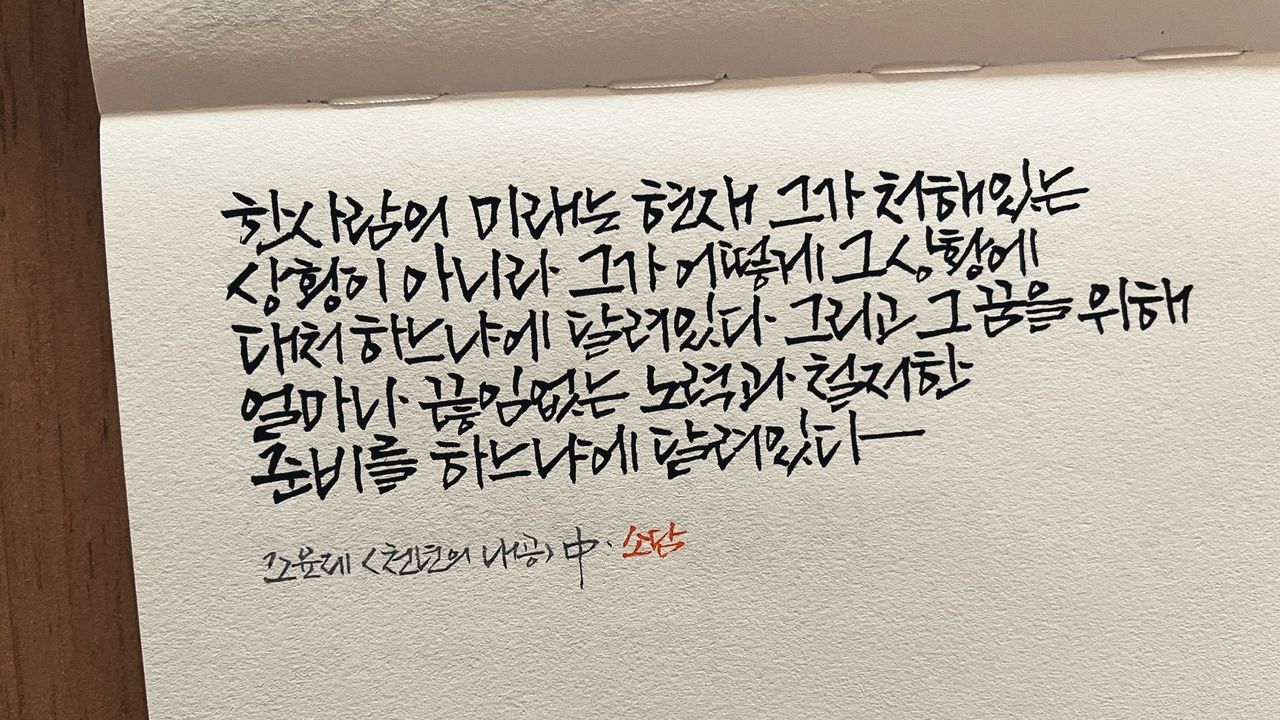 한사람의 미래는 현재 그가 처해있는
상황이 아니라 그가 어떻게 그상황에
대처하느냐에 달려있다. 그리고 그 꿈을 위해
얼마나 끊임없는 노력과 철저한
준비를 하느냐에 달려있다—
조윤제 <천년의 내공> 中. 소담